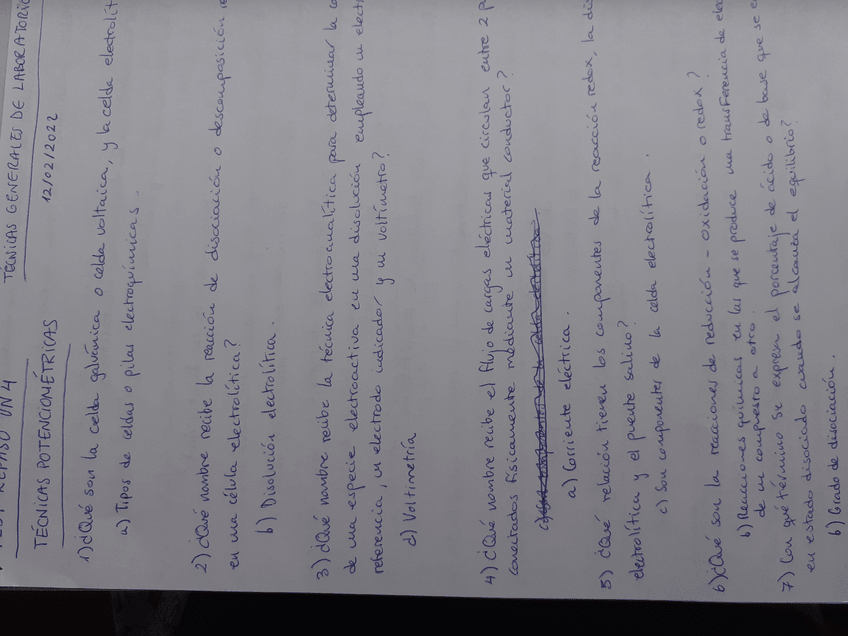 REPASO UN4
TÉCNICAS GENERALES DE LABORATORIO
TÉCNICAS POTENCIOMÉTRICAS
12/02/2022
1) ¿Qué son la celda galvánica o celda voltaica, y la celda electrolít
a) Tipos de celdas o pilas electroquímicas.
2) ¿Qué nombre recibe la reacción de disociación o descomposición
en una célula electrolítica?
b) Disolución electrolítica.
3) ¿Qué nombre recibe la técnica electroanalítica para determinar la
de una especie electroactiva en una disolución empleando un elect
referencia, un electrodo indicador y un voltímetro?
d) Voltimetría
4) ¿Qué nombre recibe el flujo de cargas eléctricas que circulan entre 2 p
conectados físicamente mediante un material conductor?
a) Corriente eléctrica.
5) ¿Qué relación tienen los componentes de la reacción redox, la di
electrolítica y el puente salino?
c) Son componentes de la celda electrolítica.
6) ¿Qué son la reacciones de reducción - oxidación o redox?
b) Reacciones químicas en las que se produce una transferencia de ele
de un compuesto a otro.
7) Con qué término se expresa el porcentaje de ácido o de base que se
en estado disociado cuando se alcanza el equilibrio?
b) Grado de disociación.